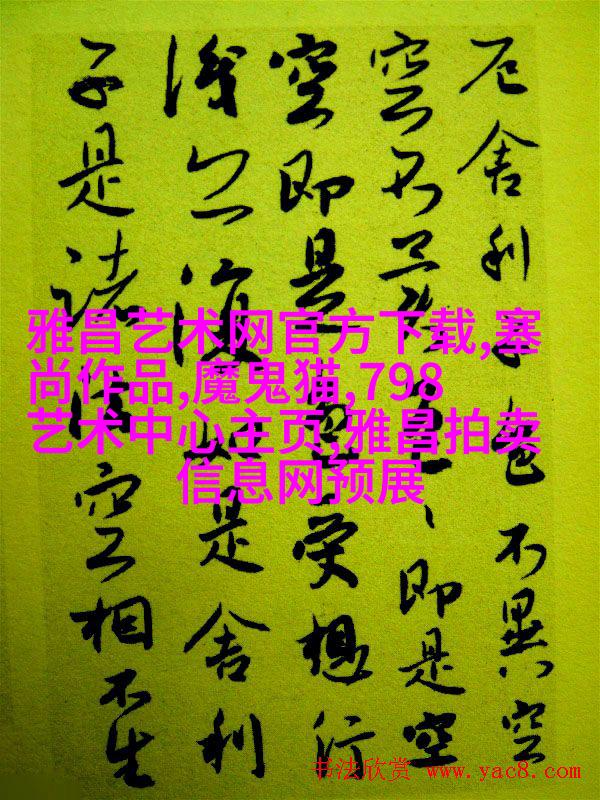 厄舍利子色不異空
空不異色、即是空
空即是色受想行
識亦復如是舍利
子是諸法空相不生
雅昌艺术网官方下载,塞
尚作品,魔鬼猫,798
艺术中心主页,雅昌拍卖
信息网预展
书法欣赏 www.yac8.com